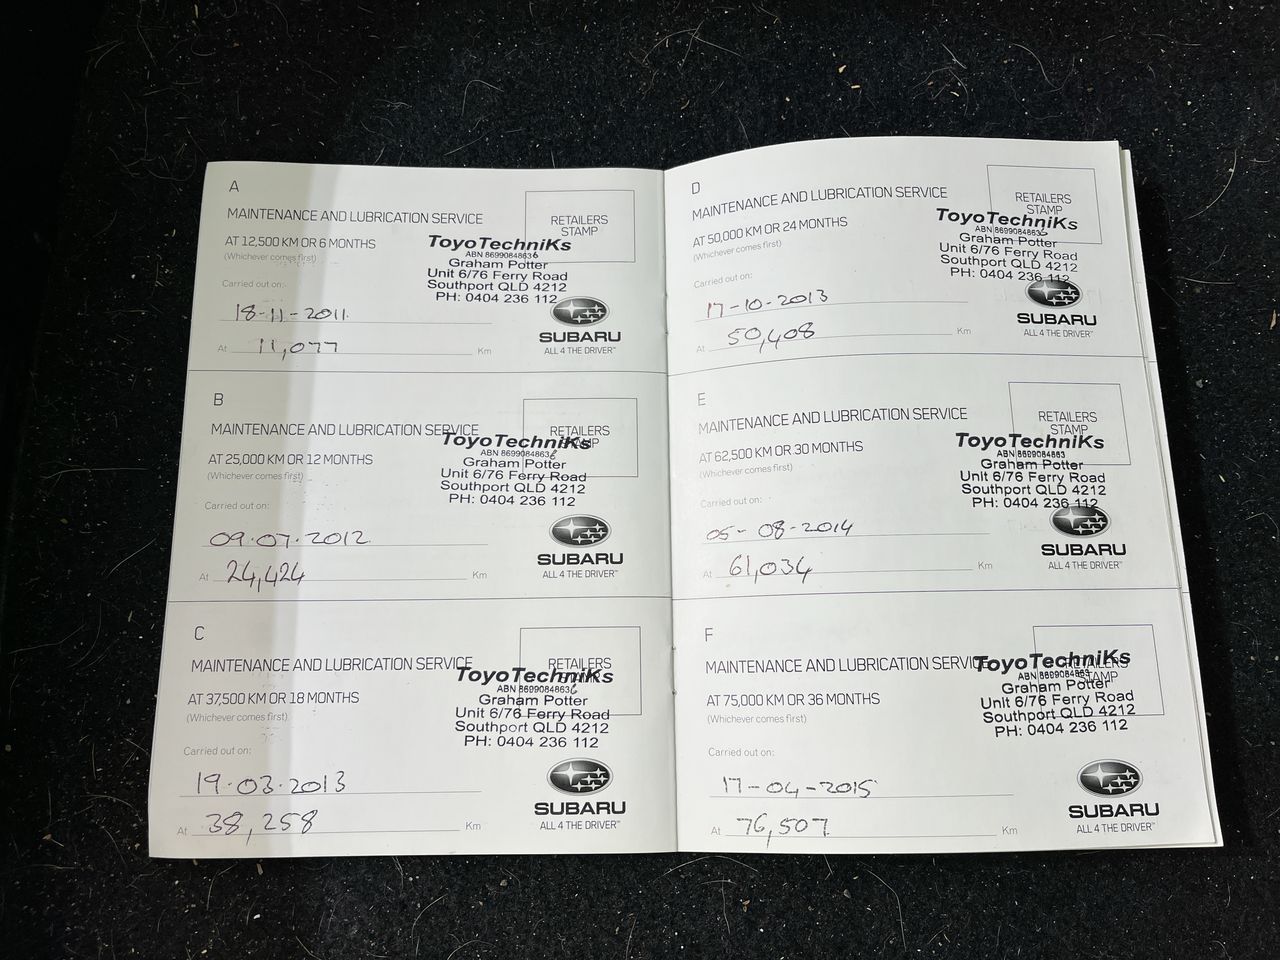 A
MAINTENANCE AND LUBRICATION SERVICE
RETAILERS
STAMP
AT 12,500 KM OR 6 MONTHS
(Whichever comes first)
ToyoTechniKs
ABN 86990848636
Graham Potter
Unit 6/76 Ferry Road
Southport QLD 4212
PH: 0404 236 112
Carried out on:
18-11-2011
At 11,077 Km
SUBARU
ALL 4 THE DRIVER™
B
MAINTENANCE AND LUBRICATION SERVICE
RETAILERS
STAMP
AT 25,000 KM OR 12 MONTHS
(Whichever comes first)
ToyoTechniKs
ABN 86990848636
Graham Potter
Unit 6/76 Ferry Road
Southport QLD 4212
PH: 0404 236 112
Carried out on:
09.07.2012
At 24,424 Km
SUBARU
ALL 4 THE DRIVER™
C
MAINTENANCE AND LUBRICATION SERVICE
RETAILERS
STAMP
AT 37,500 KM OR 18 MONTHS
(Whichever comes first)
ToyoTechniKs
ABN 86990848636
Graham Potter
Unit 6/76 Ferry Road
Southport QLD 4212
PH: 0404 236 112
Carried out on:
19.03.2013
At 38,258 Km
SUBARU
ALL 4 THE DRIVER™
D
MAINTENANCE AND LUBRICATION SERVICE
RETAILERS
STAMP
AT 50,000 KM OR 24 MONTHS
(Whichever comes first)
ToyoTechniKs
ABN 86990848636
Graham Potter
Unit 6/76 Ferry Road
Southport QLD 4212
PH: 0404 236 112
Carried out on:
17-10-2013
At 50,408 Km
SUBARU
ALL 4 THE DRIVER™
E
MAINTENANCE AND LUBRICATION SERVICE
RETAILERS
STAMP
AT 62,500 KM OR 30 MONTHS
(Whichever comes first)
ToyoTechniKs
ABN 8699084863
Graham Potter
Unit 6/76 Ferry Road
Southport QLD 4212
PH: 0404 236 112
Carried out on:
05-08-2014
At 61,034 Km
SUBARU
ALL 4 THE DRIVER™
F
MAINTENANCE AND LUBRICATION SERVICE
RETAILERS
STAMP
AT 75,000 KM OR 36 MONTHS
(Whichever comes first)
ToyoTechniKs
ABN 8699084863
Graham Potter
Unit 6/76 Ferry Road
Southport QLD 4212
PH: 0404 236 112
Carried out on:
17-04-2015
At 76,507 Km
SUBARU
ALL 4 THE DRIVER™